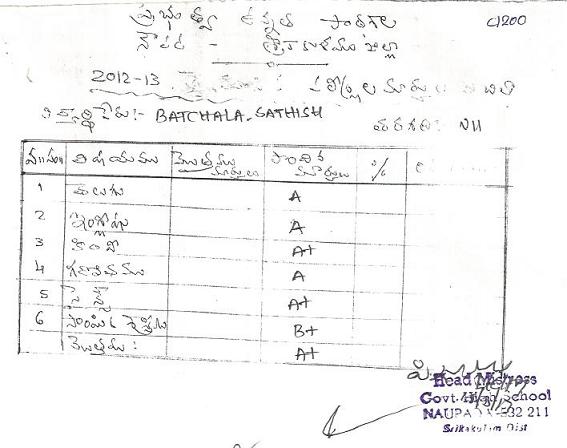 ప్రభుత్వ ఉన్నత పాఠశాల
C/200
నౌపడ - శ్రీకాకుళము జిల్లా
2012-13
విద్యార్థి పేరు:- BATCHALA. SATHISH
తరగతి:- VII
వ॥సం॥ విషయము మొత్తము మార్కులు పొందిన మార్కులు %
1 తెలుగు A
2 ఇంగ్లీషు A
3 హింది A+
4 గణితము A
5 సైన్స్ A+
6 సాంఘిక శాస్త్రము B+
మొత్తము : A+
Head Mistress
Govt. High School
NAUPADA-532 211
Srikakulam Dist